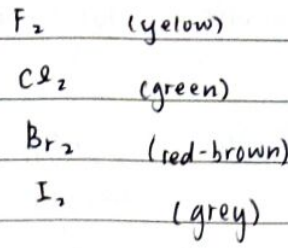 F₂ (yelow)
Cl₂ (green)
Br₂ (red-brown)
I₂ (grey)